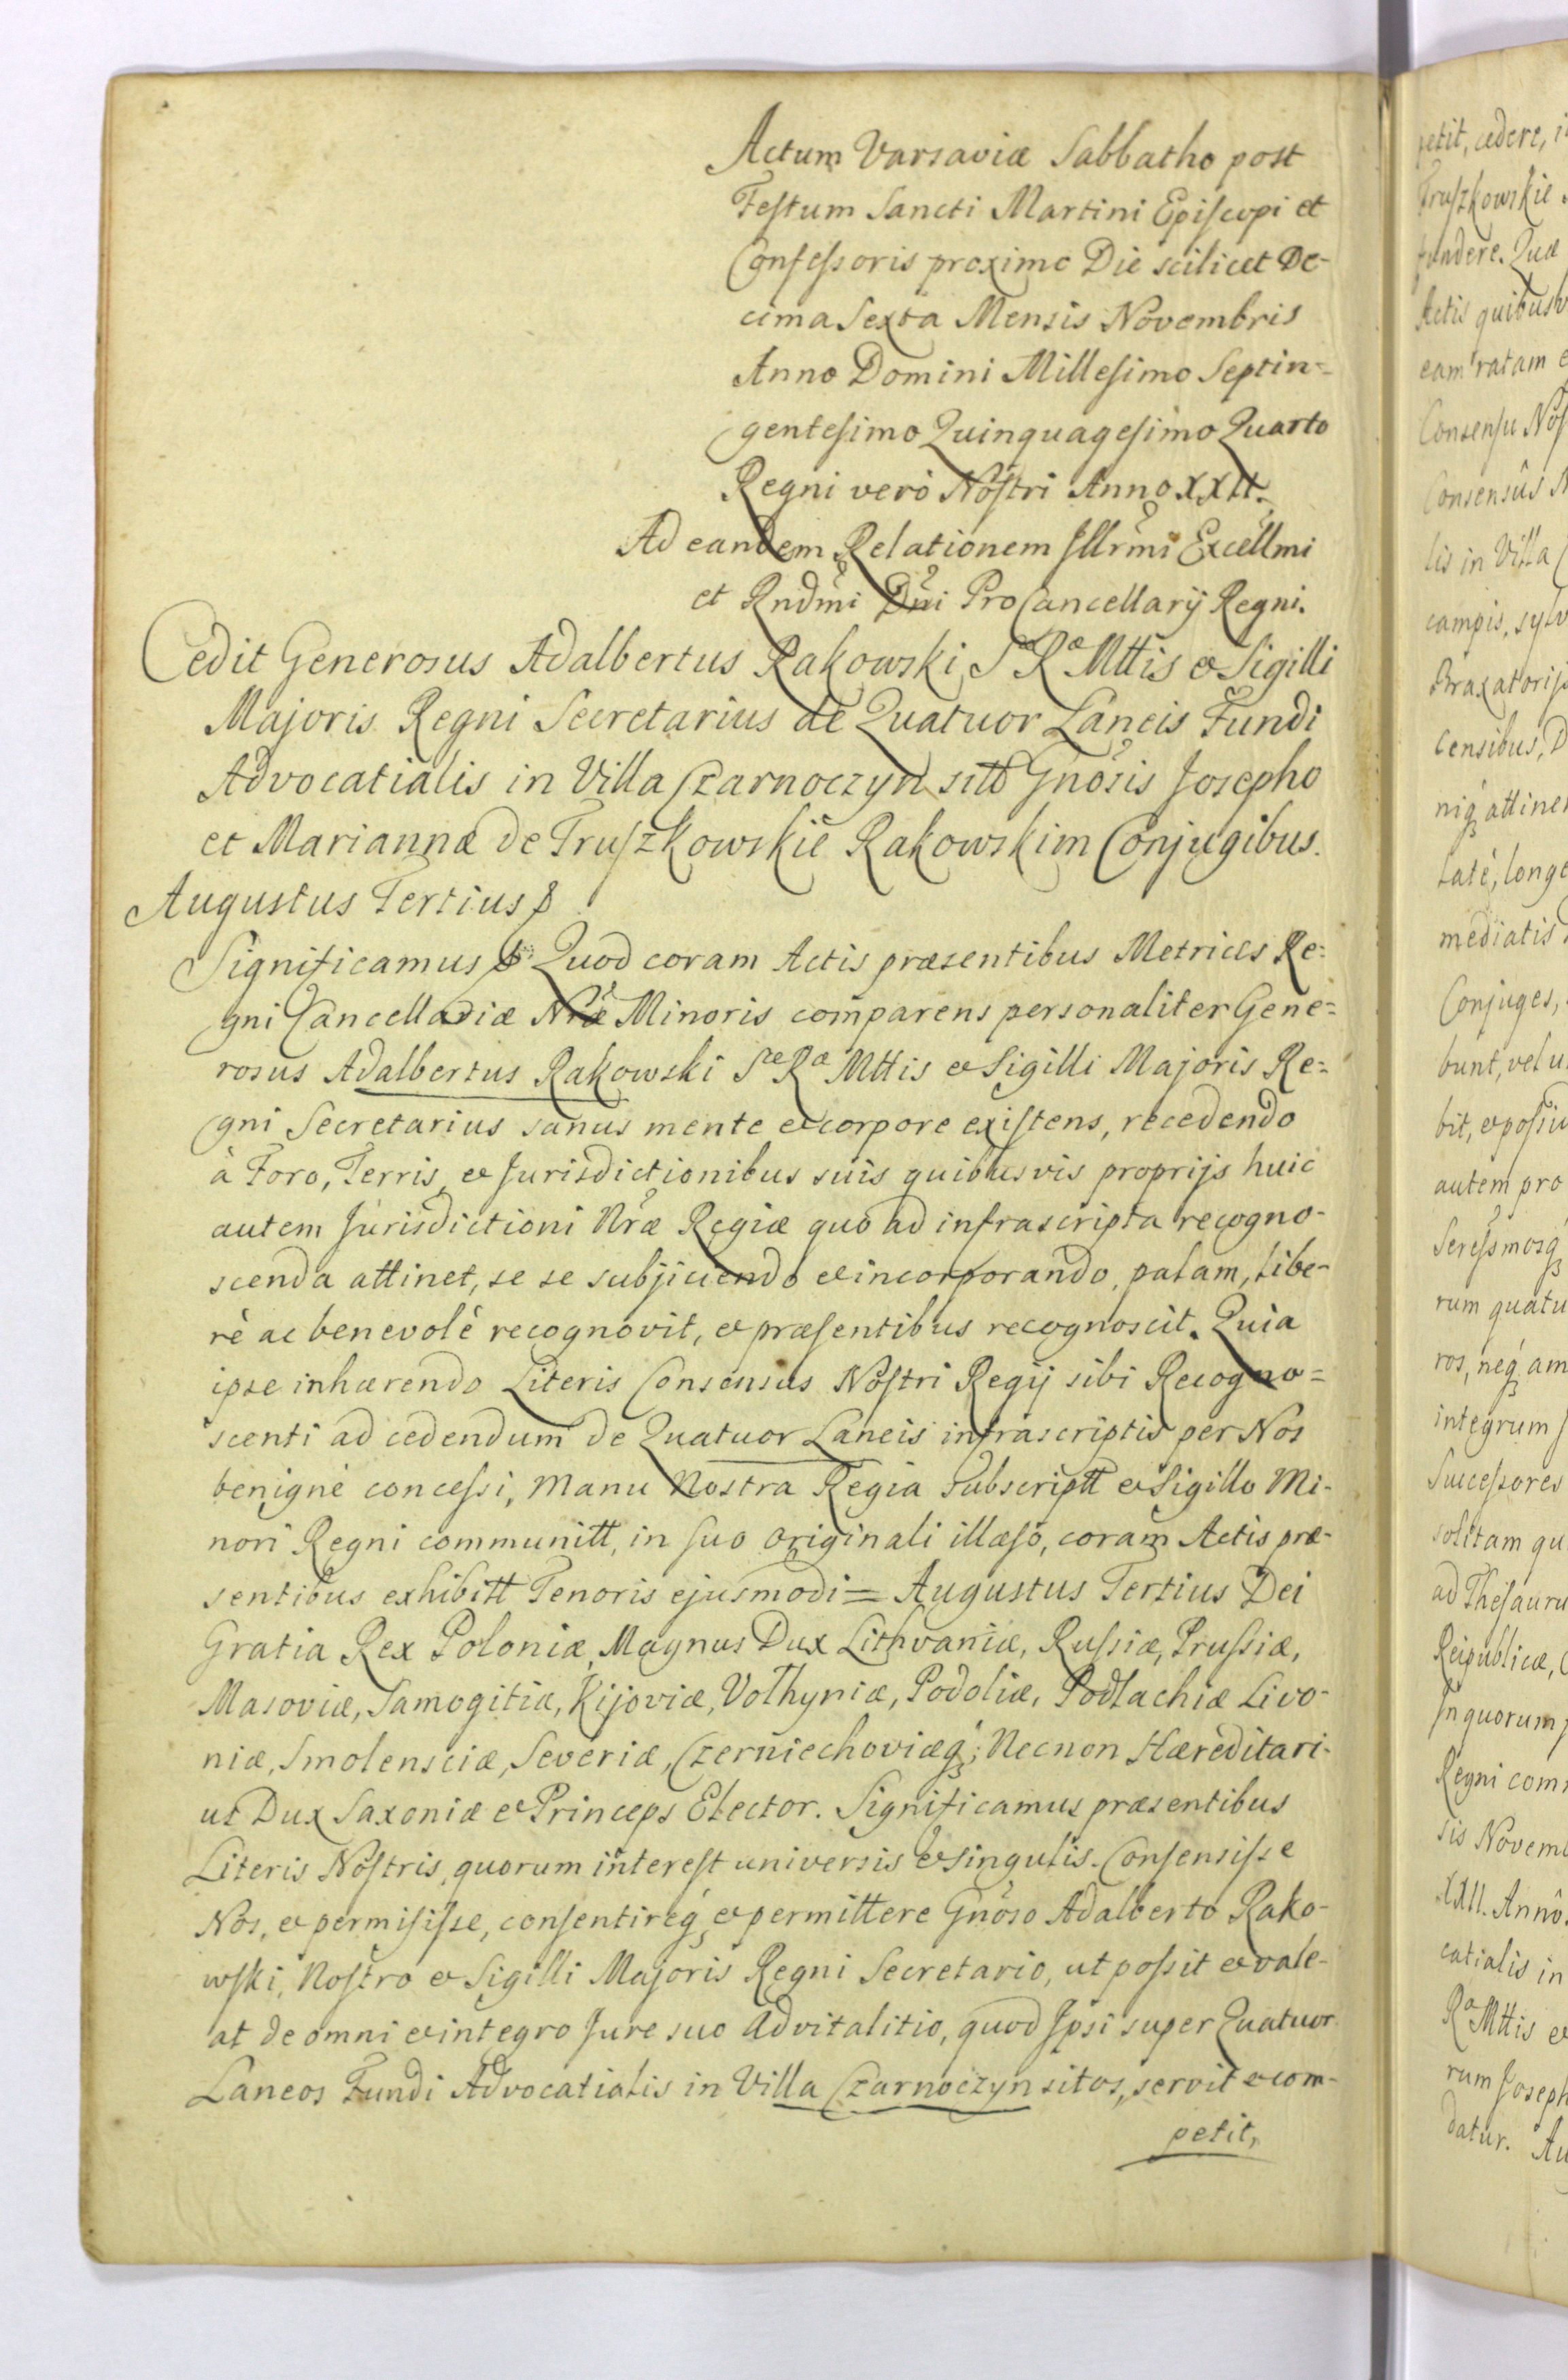 Actum Varsaviæ Sabbatho post
Festum Sancti Martini Episcopi et
Confessoris proximo Die scilicet De-
cima Sexta Mensis Novembris
Anno Domini Millesimo Septin-
gentesimo Quinquagesimo Quarto
Regni verò Nostri Anno XXII.
Ad eandem Relationem Illrmi Excellmi
et Rndmi Dni ProCancellarij Regni.
Cedit Generosus Adalbertus Rakowski Sæ Ræ Mttis & Sigilli
Majoris Regni Secretarius de Quatuor Laneis Fundi
Advocatialis in Villa Czarnoczyn sitis Gnosis Josepho
et Mariannæ de Truszkowskie Rakowskim Conjugibus.
Augustus Tertius
Significamus Quod coram Actis præsentibus Metrices Re-
gni Cancellariæ Nræ Minoris comparens personaliter Gene-
rosus Adalbertus Rakowski Sæ Ræ Mttis & Sigilli Majoris Re-
gni Secretarius sanus mente & corpore existens, recedendo
à Foro, Terris, & Jurisdictionibus suis quibusvis proprijs huic
autem Jurisdictioni Nræ Regiæ quo ad infrascripta recogno-
scenda attinet, se se subjiciendo & incorporando, palam, libe-
rè ac benevolè recognovit, & præsentibus recognoscit. Quia
ipse inhærendo Literis Consensus Nostri Regij sibi Recogno-
scenti ad cedendum de Quatuor Laneis infrascriptis per Nos
benignè concessi, Manu Nostra Regia Subscriptt & Sigillo Mi-
nori Regni communitt, in suo originali illæso, coram Actis præ-
sentibus exhibitt Tenoris ejusmodi = Augustus Tertius Dei
Gratia Rex Poloniæ, Magnus Dux Lithvaniæ, Russiæ, Prussiæ,
Masoviæ, Samogitiæ, Kijoviæ, Volhyniæ, Podoliæ, Podlachiæ Livo-
niæ, Smolensciæ, Severiæ, Czerniechoviæq; Necnon Hæreditari-
us Dux Saxoniæ & Princeps Elector. Significamus præsentibus
Literis Nostris, quorum interest universis & singulis. Consensisse
Nos, & permisisse, consentireq, & permittere Gnoso Adalberto Rako-
wski, Nostro & Sigilli Majoris Regni Secretario, ut possit & vale-
at de omni & integro Jure suo Advitalitio, quod Ipsi super Quatuor
Laneos Fundi Advocatialis in Villa Czarnoczyn sitos, servit & com-
petit,
petit, cedere,
Truszkowskie
fundere. Quæ
Actis quibusv
eam ratam e
Consensu Nos
Consensûs N
lis in Villa
campis, sylv
Braxatorijs
Censibus, D
niq attinen
Latè, longe
mediatis
Conjuges,
bunt, vel u
bit, & possid
autem pro
Seressmosq
rum quatu
ros, neq am
integrum
Successores
solitam qu
ad Thesauru
Reipublicæ,
In quorum
Regni com
sis Novem
XXII. Annô
catialis in
Ræ Mttis &
rum Joseph
datur. Au